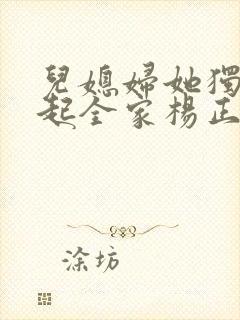 兒媳婦她獨
起全家楊正
涂坊